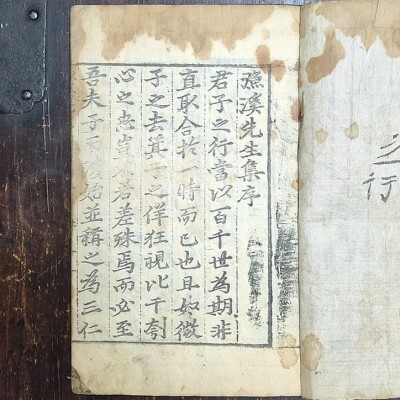 溪先生集序
君子之行當以百千世為期非
直取合扵一時而已也且如微
子之去箕子之佯狂視比干刳
心之忠豈若差殊焉而必至
吾夫子而後始並稱之為三仁
行